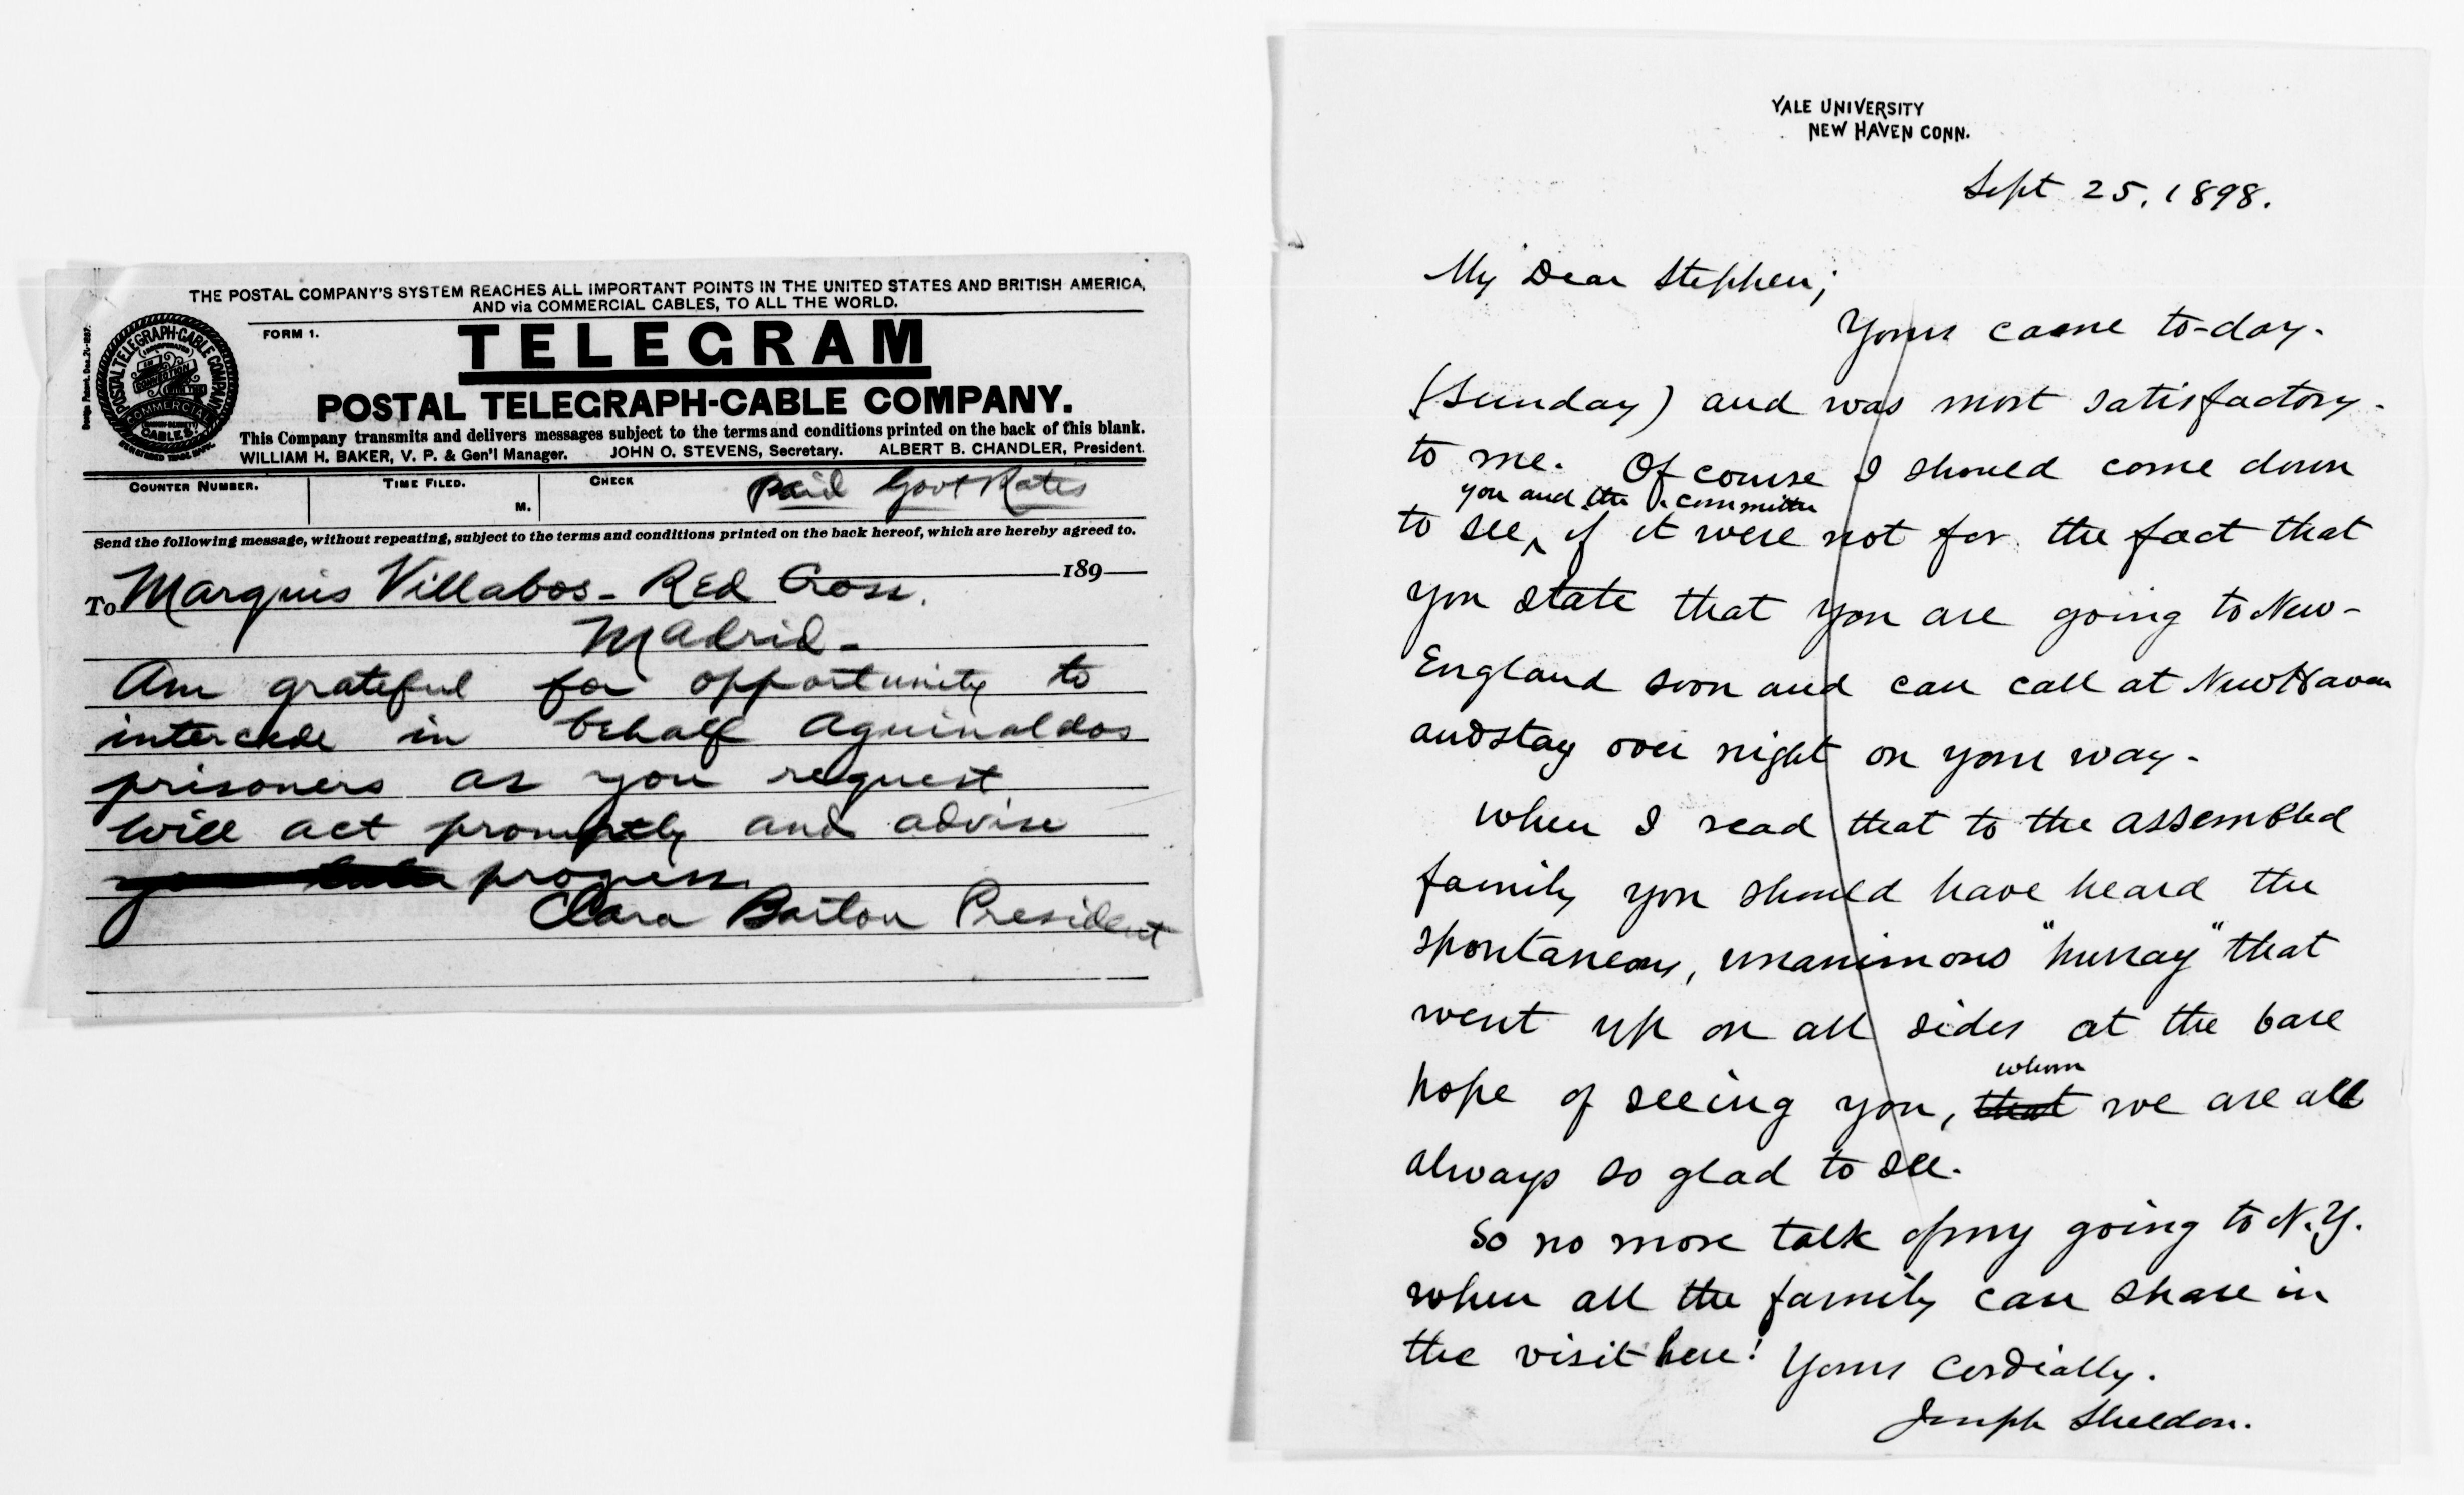 THE POSTAL COMPANY'S SYSTEM REACHES ALL IMPORTANT POINTS IN THE UNITED STATES AND BRITISH AMERICA,
AND via COMMERCIAL CABLES, TO ALL THE WORLD.
FORM 1.
TELEGRAM
POSTAL TELEGRAPH-CABLE COMPANY.
This Company transmits and delivers messages subject to the terms and conditions printed on the back of this blank.
WILLIAM H. BAKER, V. P. & Gen'l Manager. JOHN O. STEVENS, Secretary. ALBERT B. CHANDLER, President.
POSTAL TELEGRAPH-CABLE COMPANY
(INCORPORATED)
IN CONNECTION WITH THE
COMMERCIAL
CABLES
COUNTER NUMBER. TIME FILED. CHECK
M.
Paid Govt Rates
Send the following message, without repeating, subject to the terms and conditions printed on the back hereof, which are hereby agreed to.
189
To Marquis Villabos - Red Cross.
Madrid -
Am grateful for opportunity to
intercede in behalf Aguinaldos
prisoners as you request
Will act promptly and advise
progress
Clara Barton President
YALE UNIVERSITY
NEW HAVEN CONN.
Sept 25, 1898.
My Dear Stephen;
Yours came to-day.
(Sunday) and was most satisfactory.
to me. Of course I should come down
you and the committee
to see, if it were not for the fact that
you state that you are going to New-
England soon and can call at New Haven
and stay over night on your way.
When I read that to the assembled
family you should have heard the
spontaneous, unanimous "hurray" that
went up on all sides at the bare
whom
hope of seeing you, that we are all
always so glad to see.
So no more talk of my going to N.Y.
when all the family can share in
the visit here! Yours Cordially.
Joseph Sheldon.